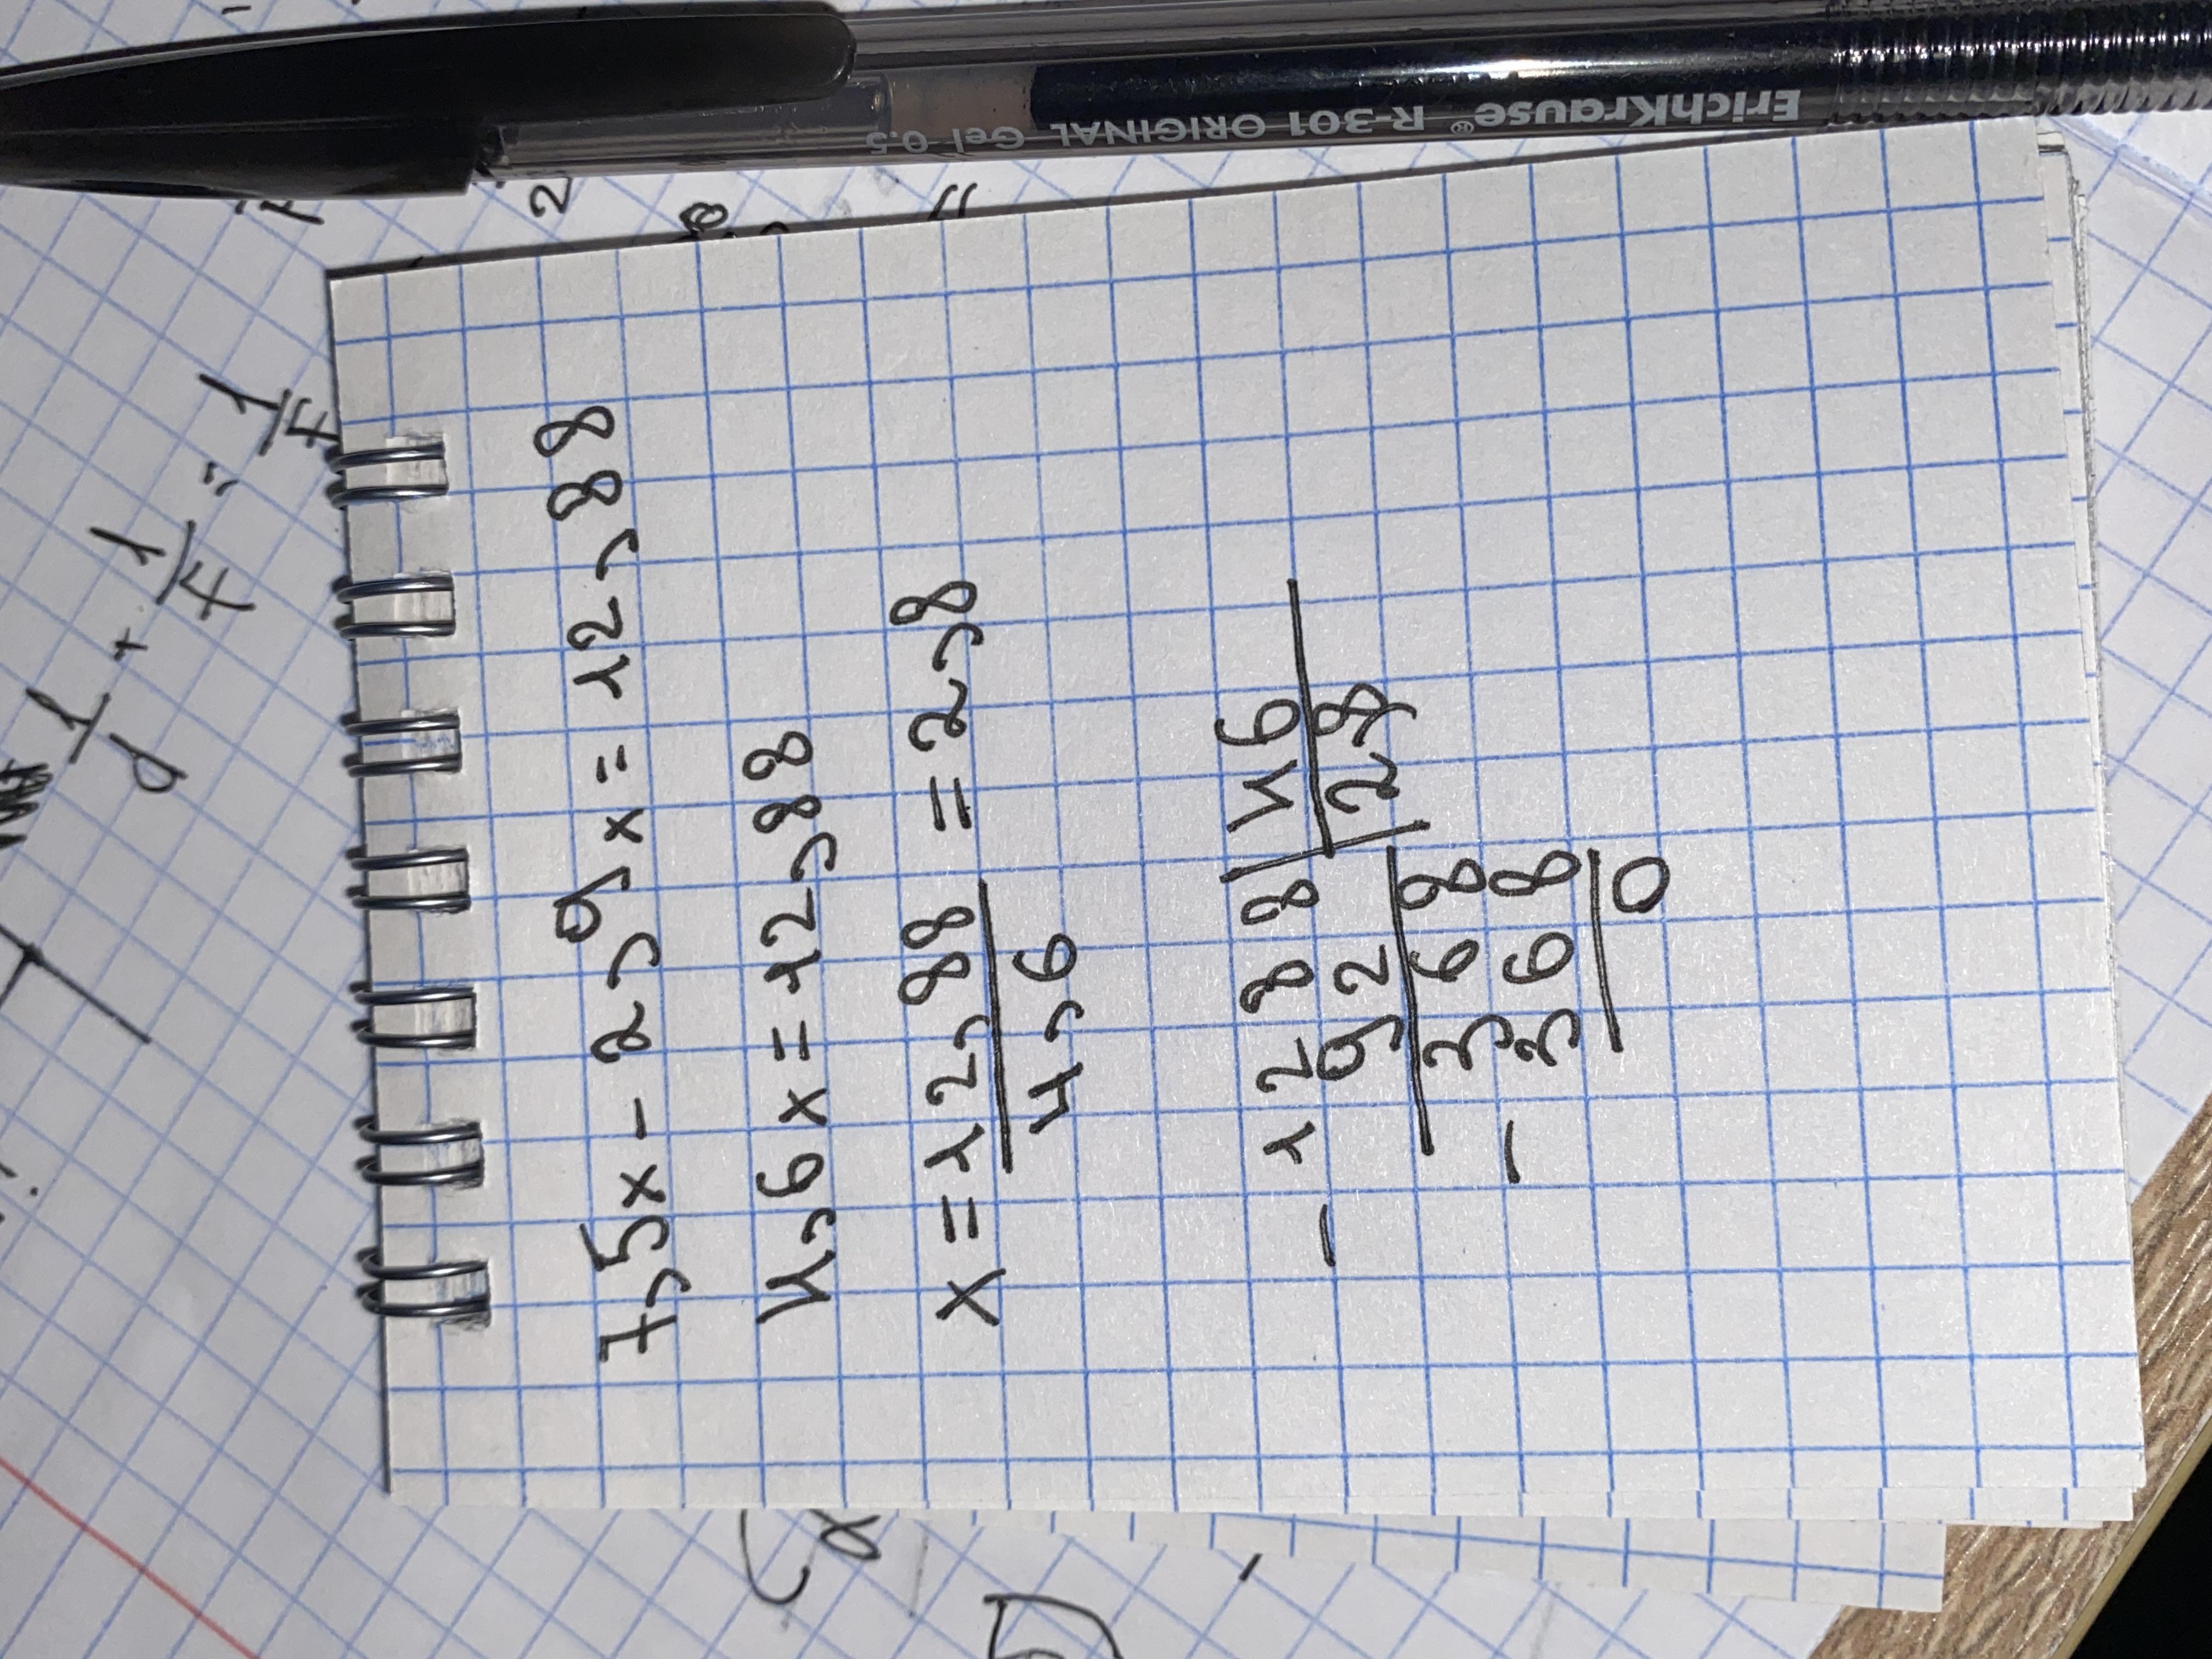 ErichKrause® R-301 ORIGINAL Gel 0.5
1/d + 1/F = 1/F
7,5x - 2,9x = 12,88
4,6x = 12,88
x = 12,88/4,6 = 2,8
- 1288 | 46
92 | 2,8
368
- 368
0